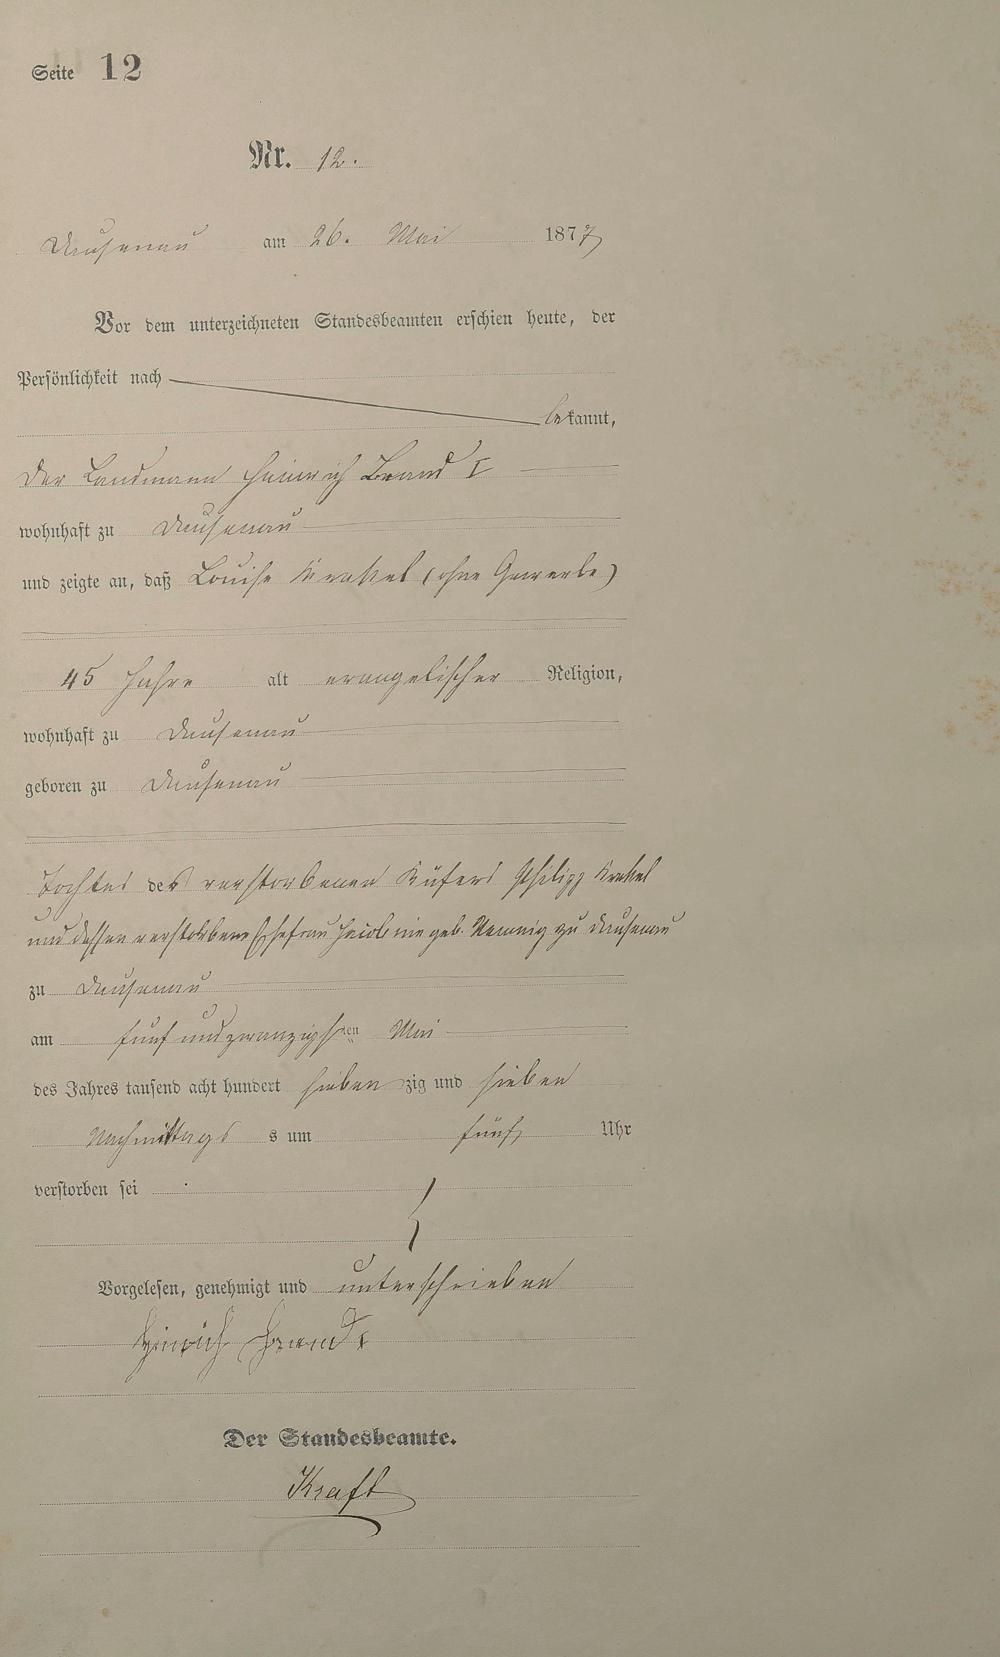 Seite 12
Nr. 12.
Dausenau am 26. Mai 1877
Vor dem unterzeichneten Standesbeamten erschien heute, der
Persönlichkeit nach
bekannt,
der Landmann Heinrich Brand I
wohnhaft zu Dausenau
und zeigte an, daß Louise (ohne Gewerbe)
45 Jahre alt evangelischer Religion,
wohnhaft zu Dausenau
geboren zu Dausenau
Tochter des verstorbenen Küfers Philipp
und dessen verstorbene Ehefrau Jacobine geb. zu Dausenau
zu Dausenau
am fünf und zwanzigsten Mai
des Jahres tausend acht hundert siebenzig und sieben
Nachmittags s um fünf Uhr
verstorben sei
Vorgelesen, genehmigt und unterschrieben
Heinrich Brand I
Der Standesbeamte.
Kraft